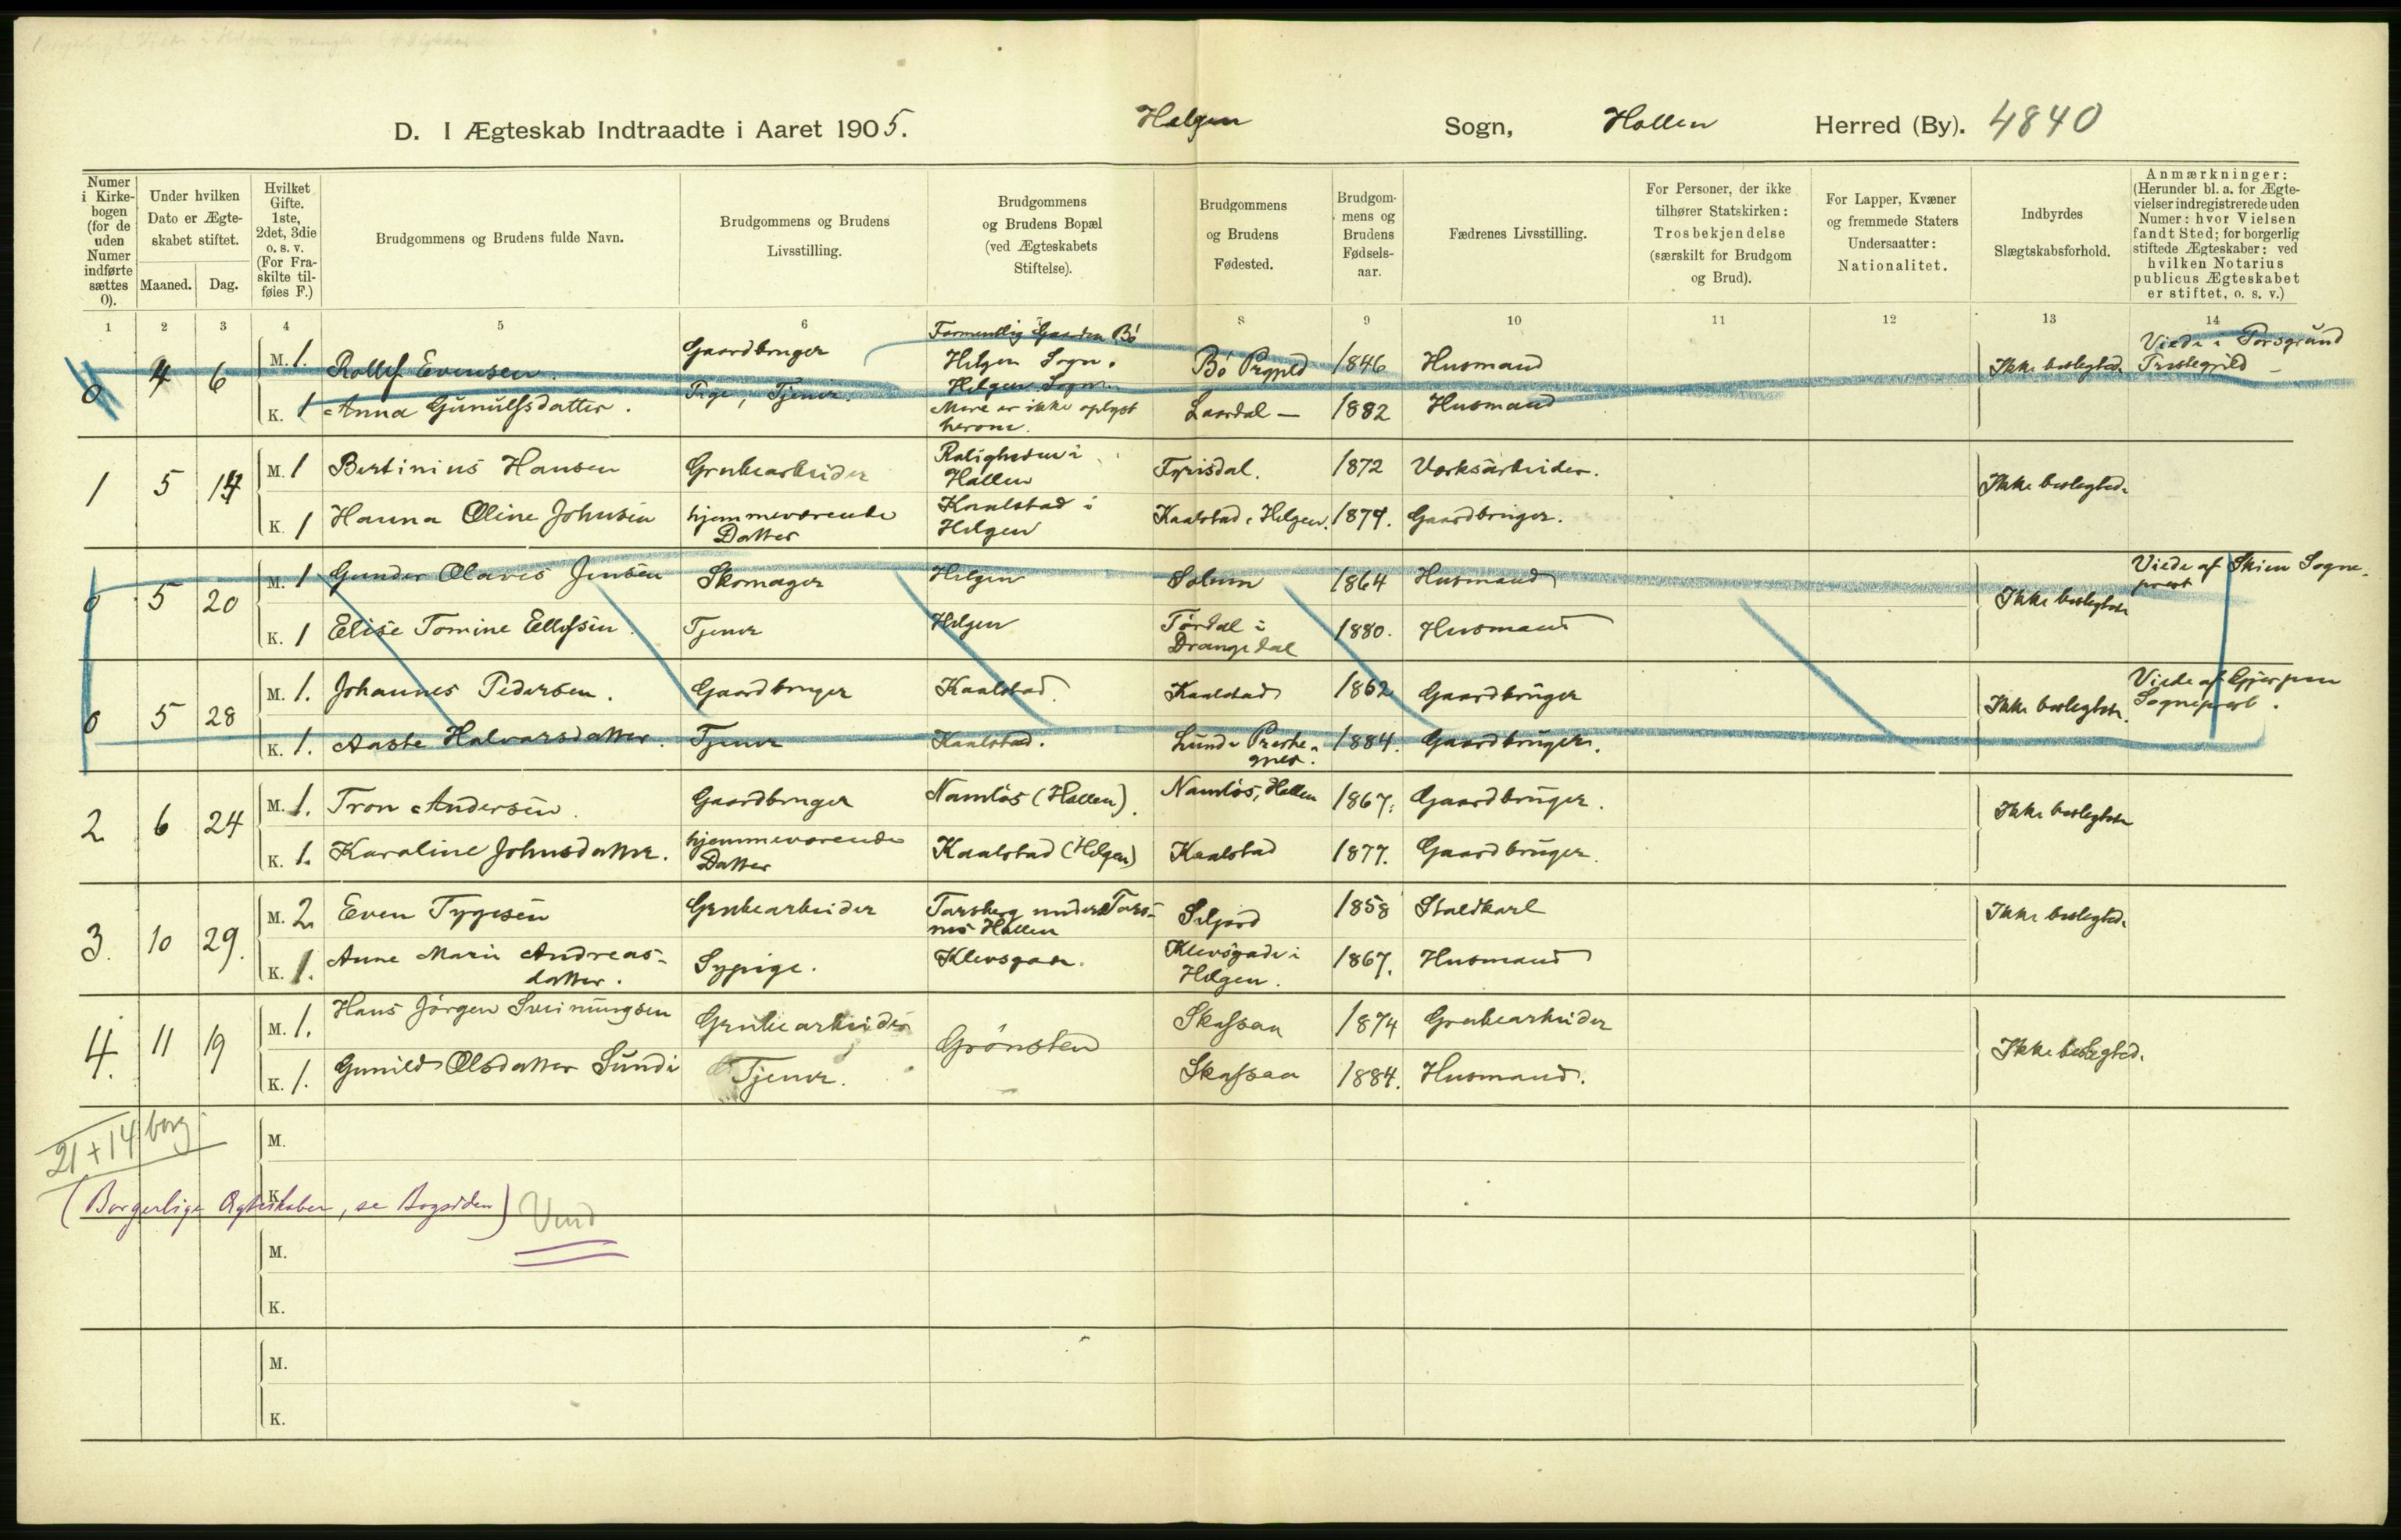 D. I Ægteskab Indtraadte i Aaret 1905. Helgen Sogn, Hollen Herred (By). 4840
Numer i Kirkebogen (for de uden Numer indførte sættes 0).
Under hvilken Dato er Ægteskabet stiftet.
Maaned. Dag.
Hvilket Gifte. 1ste, 2det, 3die o. s. v. (For Fraskilte tilføies F.)
Brudgommens og Brudens fulde Navn.
Brudgommens og Brudens Livsstilling.
Brudgommens og Brudens Bopæl (ved Ægteskabets Stiftelse).
Brudgommens og Brudens Fødested.
Brudgommens og Brudens Fødselsaar.
Fædrenes Livsstilling.
For Personer, der ikke tilhører Statskirken: Trosbekjendelse (særskilt for Brudgom og Brud).
For Lapper, Kvæner og fremmede Staters Undersaatter: Nationalitet.
Indbyrdes Slægtskabsforhold.
Anmærkninger: (Herunder bl. a. for Ægtevielser indregistrerede uden Numer: hvor Vielsen fandt Sted; for borgerlig stiftede Ægteskaber: ved hvilken Notarius publicus Ægteskabet er stiftet, o. s. v.)
1 2 3 4 5 6 7 8 9 10 11 12 13 14
0 4 6 M. 1. Rollef Evensen. Gaardbruger Formentlig Gaarden Bö Helgen Sogn. Bö Prgjeld 1846 Husmand Ikke beslegtede Viede i Porsgrund Prestegjeld
K. 1 Anna Gunulfsdatter. Pige, Tjener. Helgen Sogn. Mere er ikke oplyst herom. Laardal — 1882 Husmand
1 5 14 M. 1 Bertinius Hansen Grubearbeider Boligheden i Hollen Fyrisdal. 1872 Værksarbeider. Ikke beslegtede
K. 1 Hanna Oline Johnsen hjemmeværende Datter Kaalstad i Helgen Kaalstad i Helgen. 1879. Gaardbruger.
0 5 20 M. 1 Gunder Olaves Jensen Skomager Helgen Solum 1864 Husmand Ikke beslegtede Viede af Skien Sogneprest
K. 1 Elise Tomine Ellefsen. Tjener Helgen Tørdal i Drangedal 1880. Husmand
0 5 28 M. 1. Johannes Pedersen. Gaardbruger Kaalstad. Kaalstad 1862 Gaardbruger Ikke beslegtede. Viede af Gjerpen Sogneprest.
K. 1. Aaste Halvorsdatter. Tjener Kaalstad. Lunde Prestegjeld. 1884. Gaardbruger.
2 6 24 M. 1. Tron Andersen. Gaardbruger Namløs (Hollen). Namløs, Hollen 1867. Gaardbruger. Ikke beslegtede
K. 1. Karoline Johnsdatter. hjemmeværende Datter Kaalstad (Helgen) Kaalstad 1877. Gaardbruger.
3. 10 29. M. 2. Even Tygesen Grubearbeider Hollen Seljord 1858 Staldkarl Ikke beslegtede
K. 1. Anne Marie Andreasdatter. Sypige. Klevsgade. Klevsgade i Helgen. 1867. Husmand
4. 11 19 M. 1. Hans Jörgen Sveinungsen Grubearbeider Grönsten Skafsaa 1874 Grubearbeider Ikke beslegted.
K. 1. Gunild Olsdatter Sundi Tjener. Skafsaa 1884. Husmand.
21 + 14 borg
M.
K.
(Borgerlige Ægteskaber, se Bagsiden) Vend
M.
K.
M.
K.